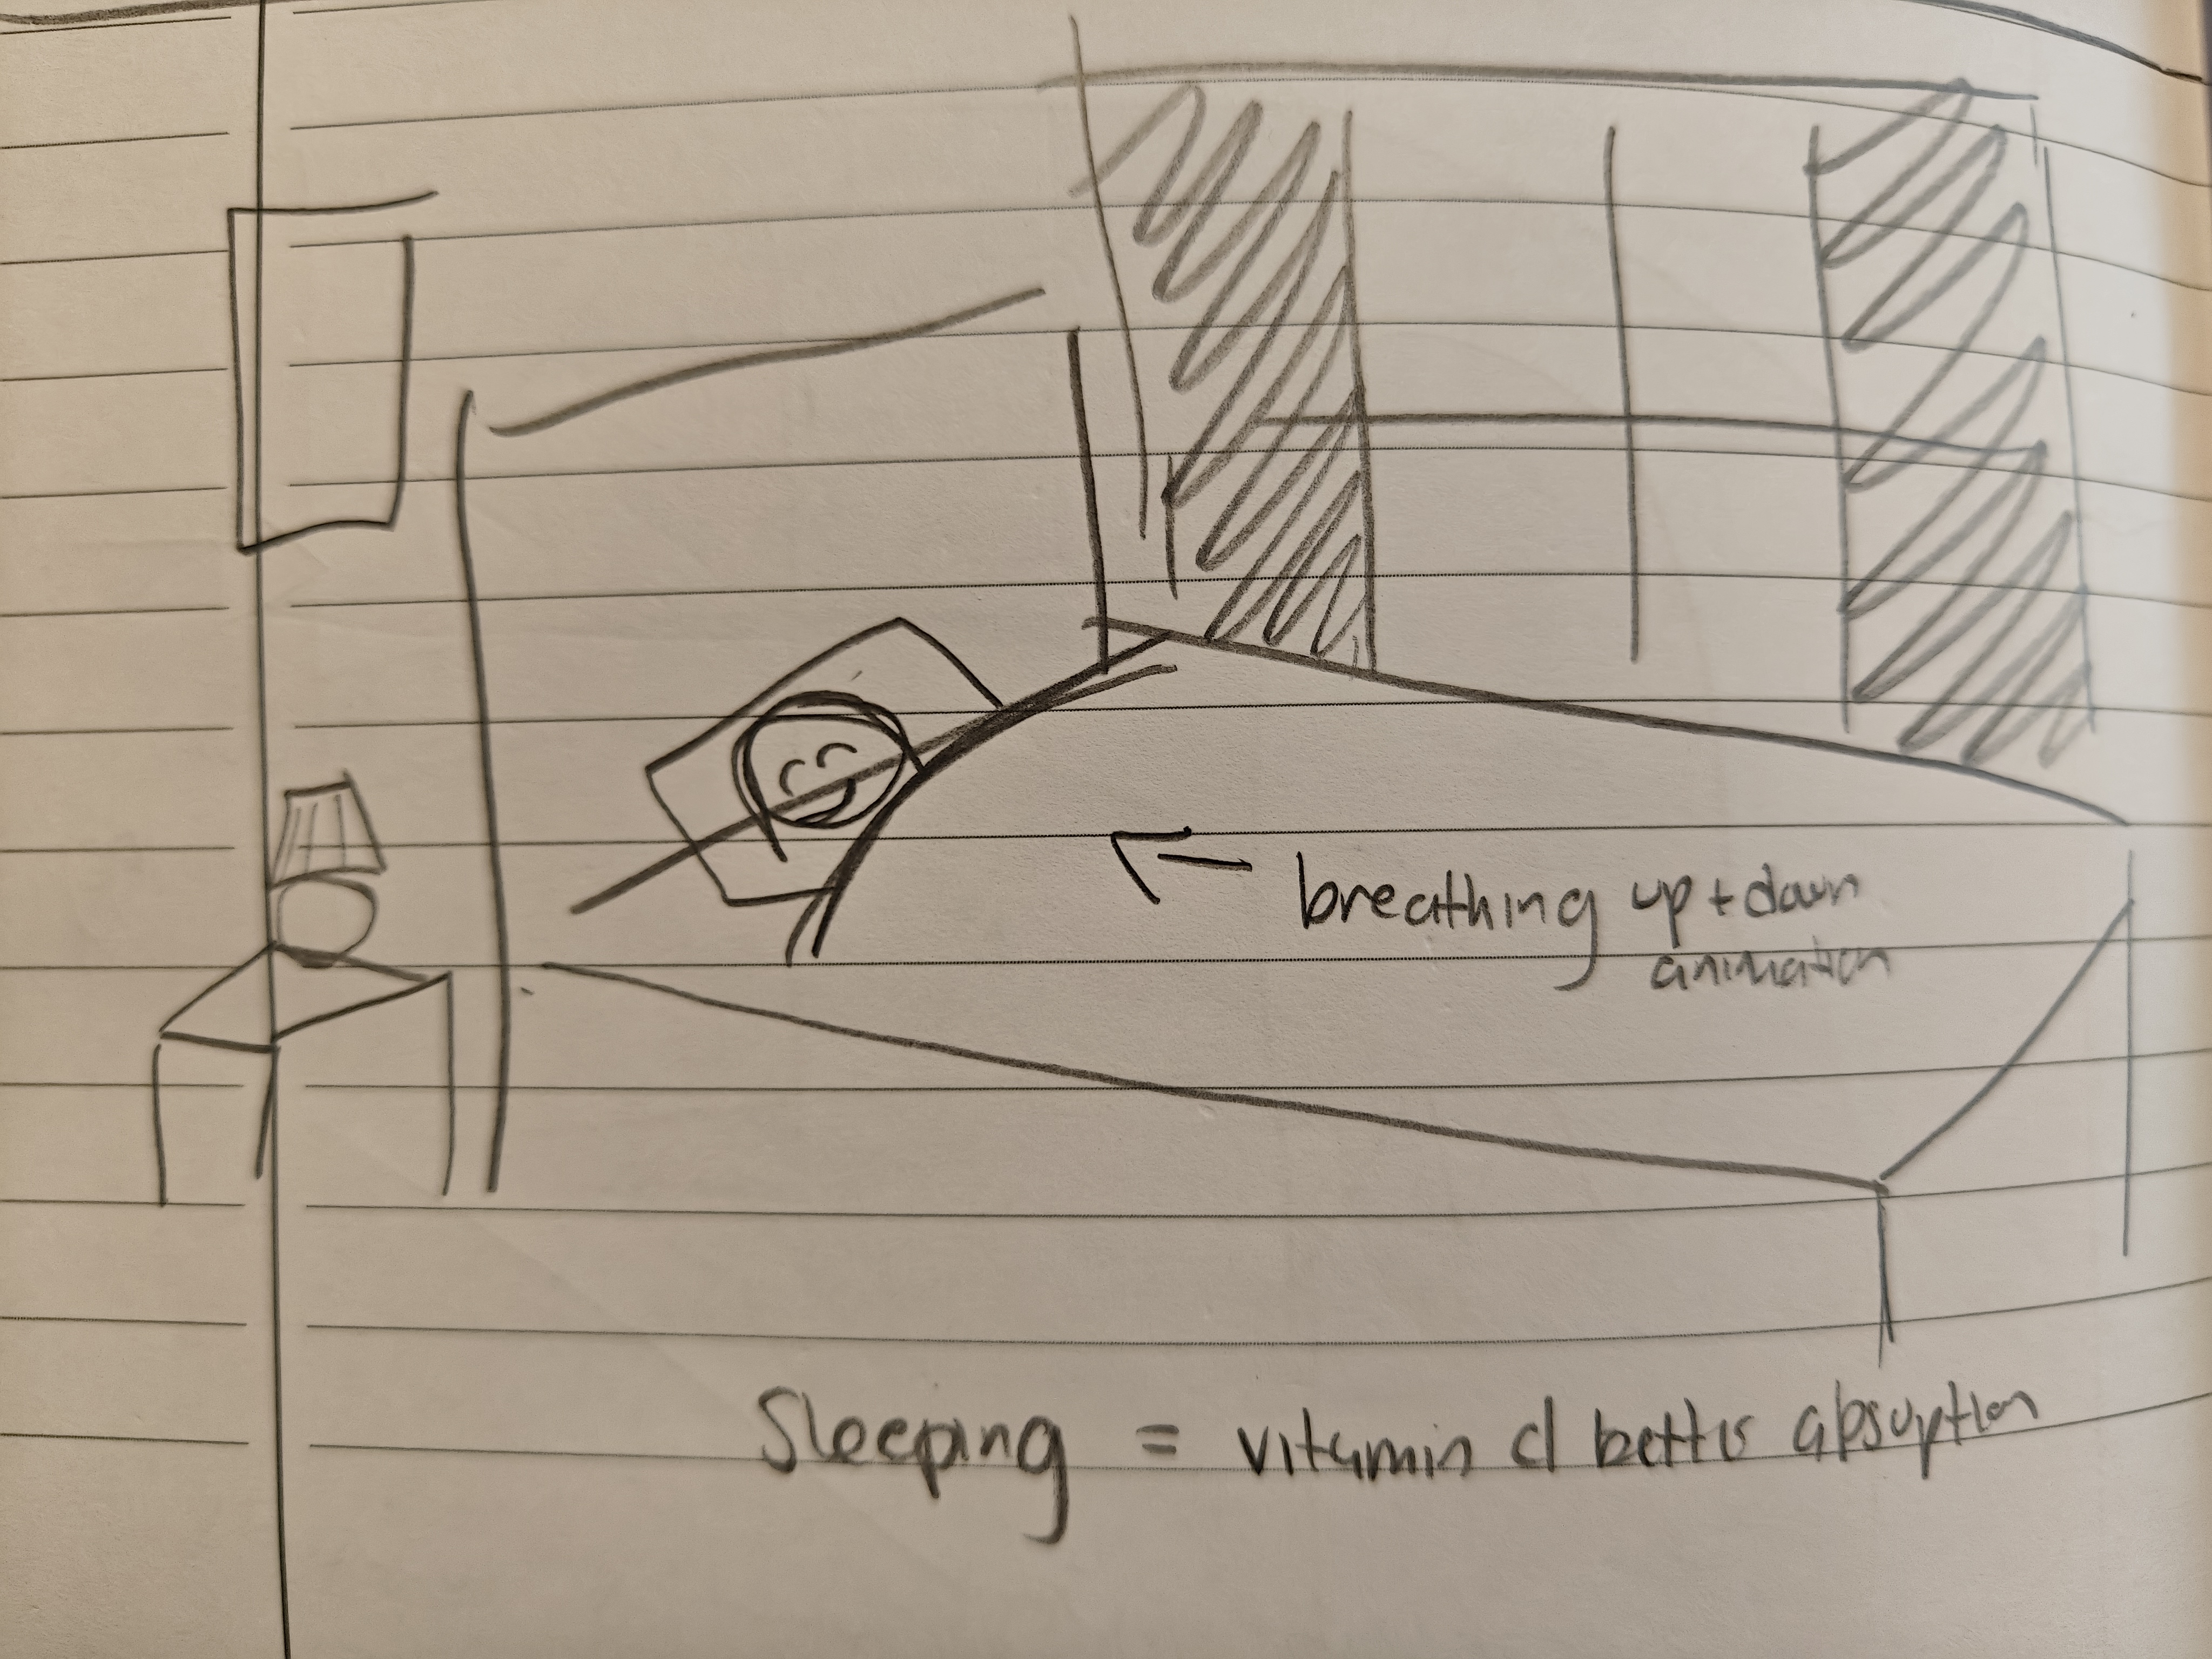 breathing up + down
animation
Sleeping = vitamin d better absuption